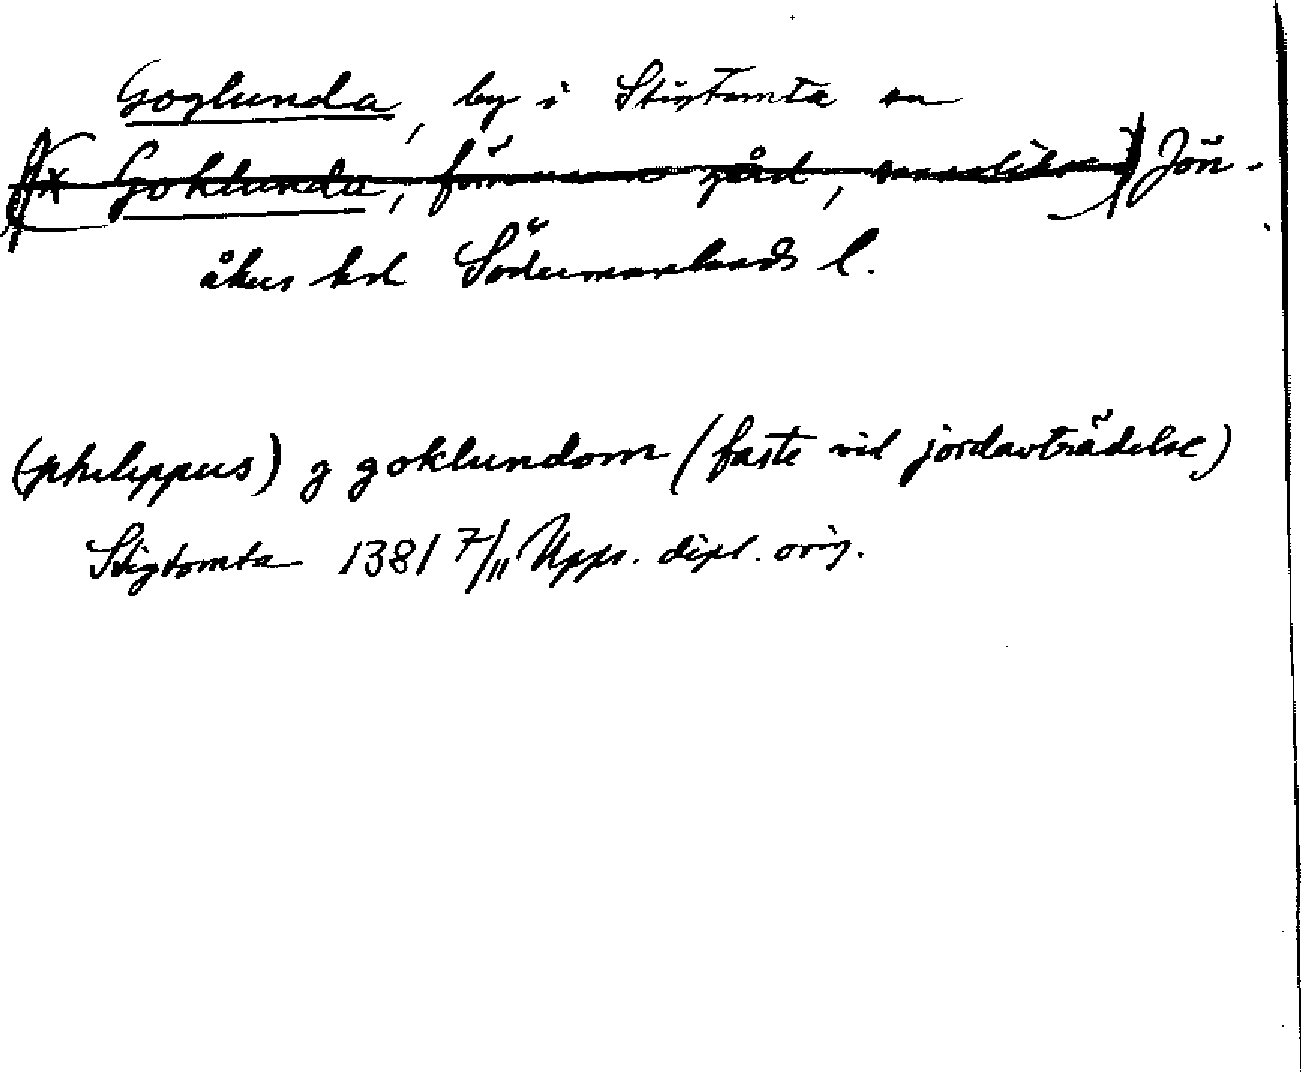 Goglunda, by i Stigtomta sn
(x Goklunda, försvunnen gård, sannolikt) Jön-
åkers hd Södermanlands l.
(philippus) j goklundom (faste vid jordavträdelse)
Stigtomta 1381 7/11 Upps. dipl. orig.